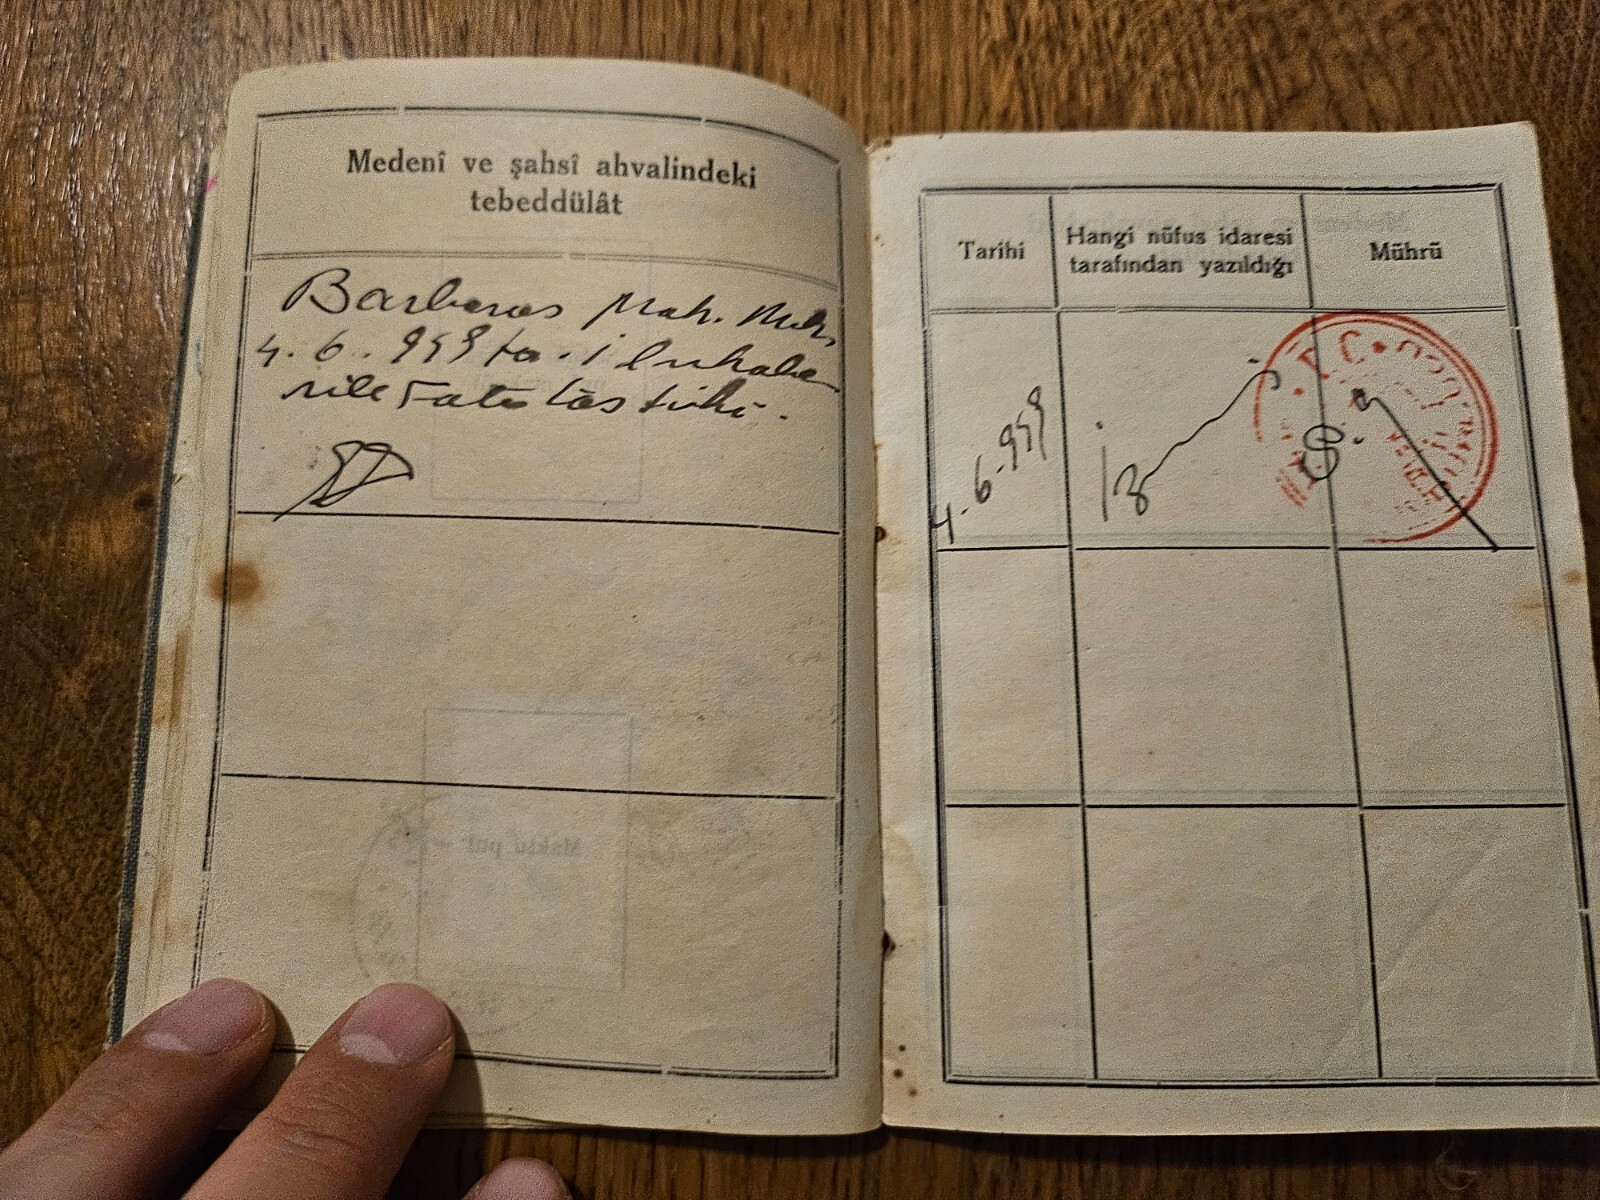 Medenî ve şahsî ahvalindeki
tebeddülât
Barbaros Mah. Muh.
4. 6. 959 ta. ilmuhabe
rile
Tarihi
Hangi nüfus idaresi
tarafından yazıldığı
Mührü
4.6.959
T.C.
Maktu pul